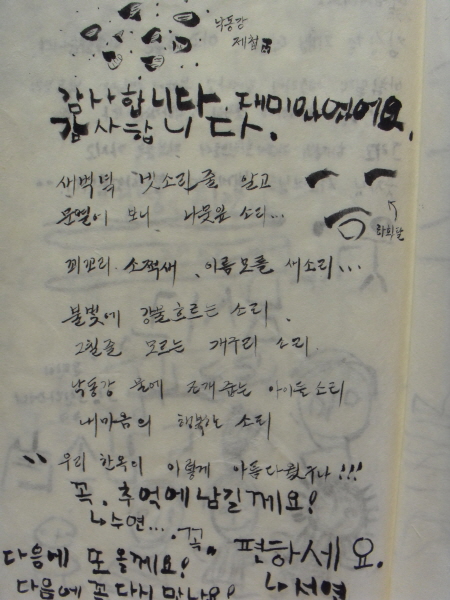 낙동강
제첩
감사합니다. 재미있었어요.
감사합니다.
새벽녘 빗소리줄 알고
문열어 보니 나뭇잎 소리...
꾀꼬리 소쩍새 이름모를 새소리...
불빛에 강물흐르는 소리.
그칠줄 모르는 개구리 소리.
낙동강 물에 조개 줍는 아이들 소리
내마음의 행복한 소리
우리 한옥이 이렇게 아름다웠구나!!!
꼭, 추억에 남길께요!
↳수연...
다음에 또 올께요! 꼭. 편하세요.
다음에 꼭 다시 만나요! ↳서연